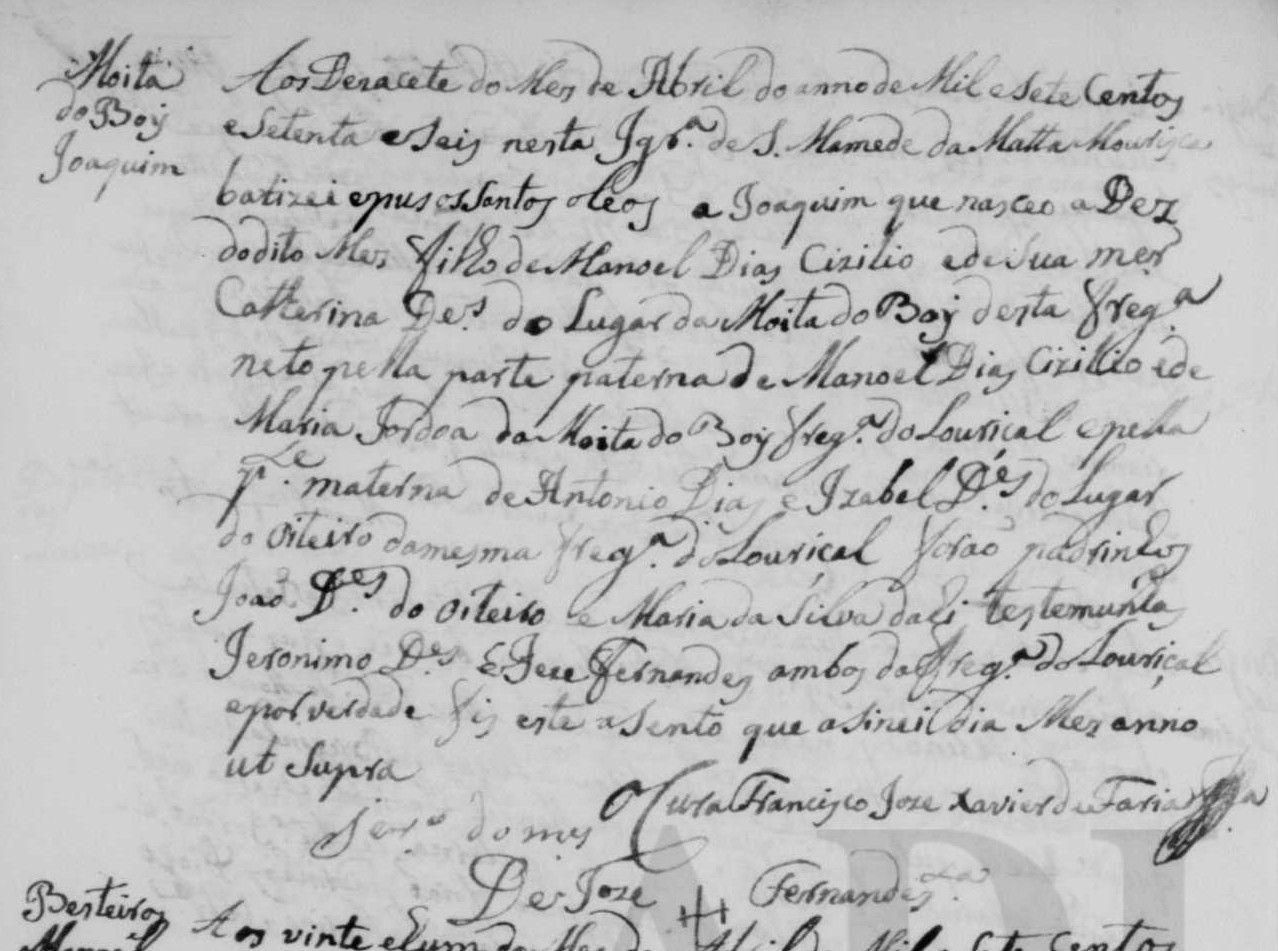 Moita
do Boy
Joaquim
Aos Dezacete do Mez de Abril do anno de Mil e Sete Centos
e Setenta e Seis nesta Igr.ª de S. Mamede da Matta Mourisca
batizei e pus os Santos oleos a Joaquim que nasceo a Dez
do dito Mez filho de Manoel Dias Cizilio e de Sua mer
Catherina De.s do Lugar da Moita do Boy desta freg.ª
neto pella parte paterna de Manoel Dias Cizilio e de
Maria Jordoa da Moita do Boy freg.ª do Lourical e pella
p.te materna de Antonio Dias e Izabel D.es do Lugar
do oiteiro da mesma freg.ª do Louriçal forão padrinhos
João D.es do oiteiro e Maria da Silva dahi testemunhas
Jeronimo D.es e Joze Fernandes ambos da freg.ª do Louriçal
e por verdade fis este asento que asinei dia Mez anno
ut Supra
O Cura Francisco Joze Xavier de Faria
do mes
De Joze Fernandes
Besteiros
Aos vinte e hum do Mez de Abril de Mil e Sete Centos
ADL